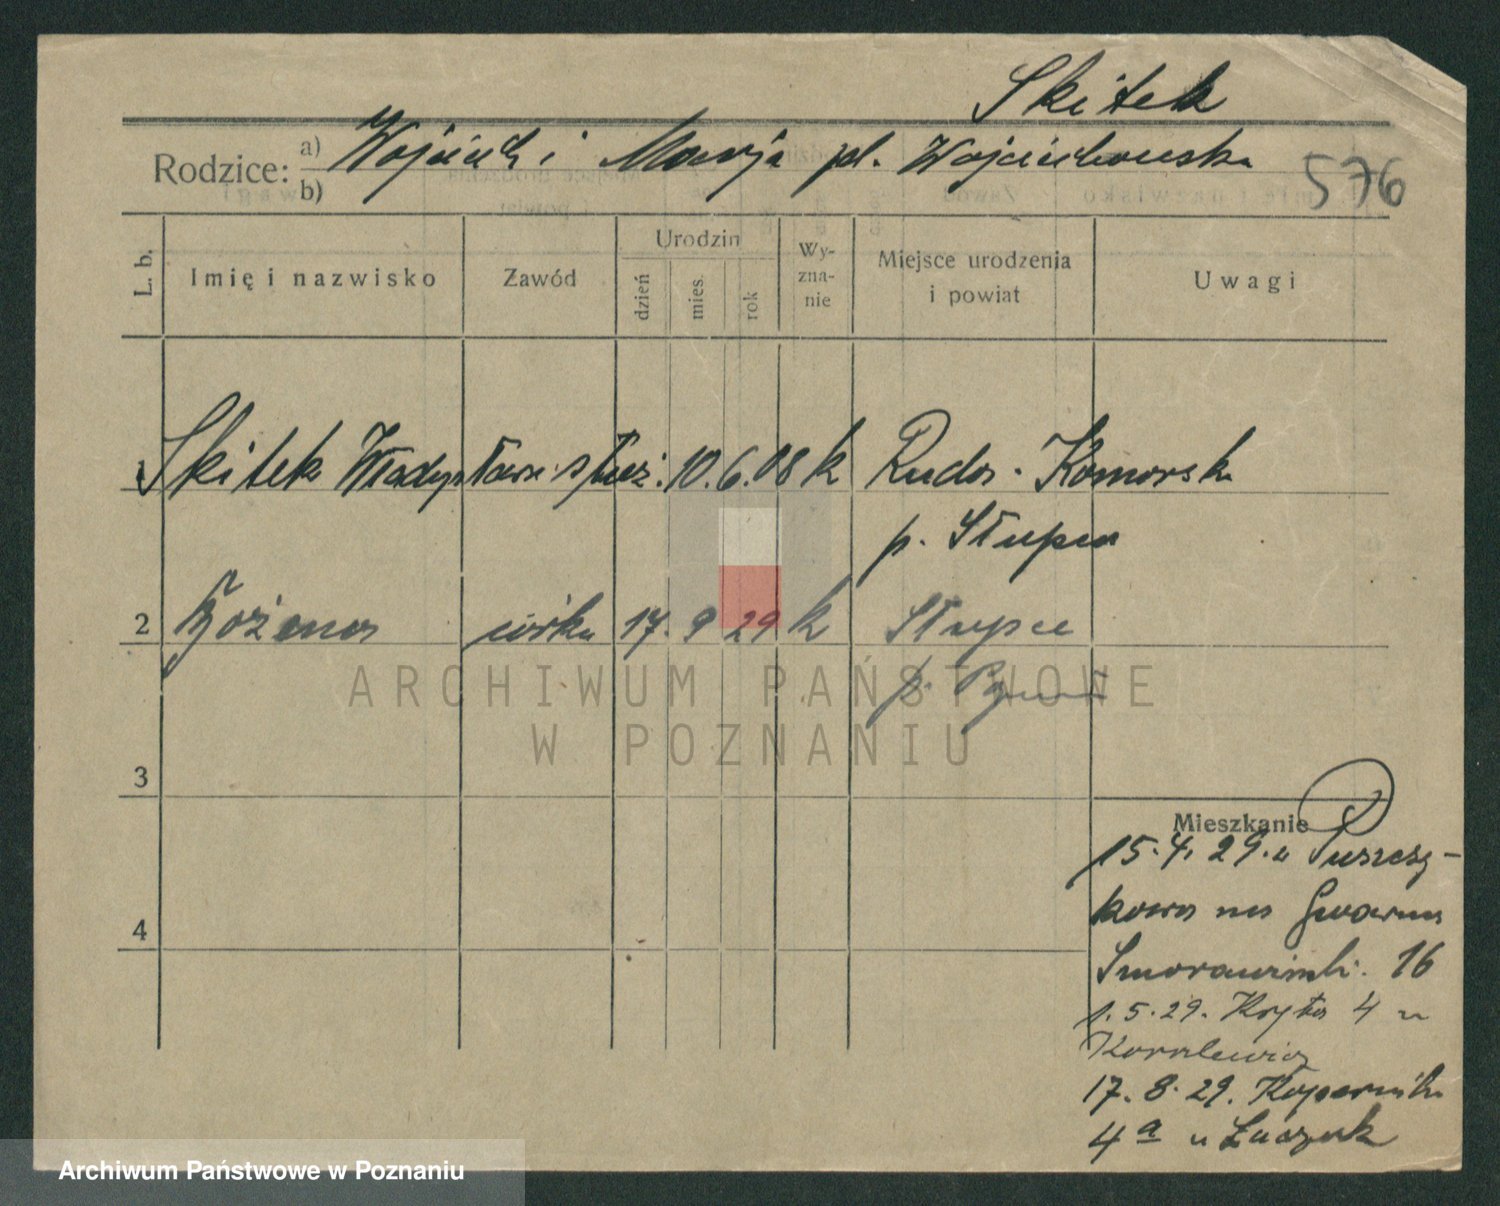 Skitek
Rodzice: a) Wojciech i Marja pl. Wojciechowska 576
b)
L. b. Imię i nazwisko Zawód Urodzin dzień mies. rok Wy-zna-nie Miejsce urodzenia i powiat Uwagi
1 Skitek Władysława służ. 10. 6. 08 k Ruda-Komorska
p. Słupca
2 Bożena córka 17. 9 29 k Słupca
p.
ARCHIWUM PAŃSTWOWE
W POZNANIU
3
4
Mieszkanie
15.4.29. u Puszczy-
kowa na Gwarna
16
1.5.29. Kryta 4 u
Koralewicz
17.8.29. Kopernika
4a u Łuczak
Archiwum Państwowe w Poznaniu